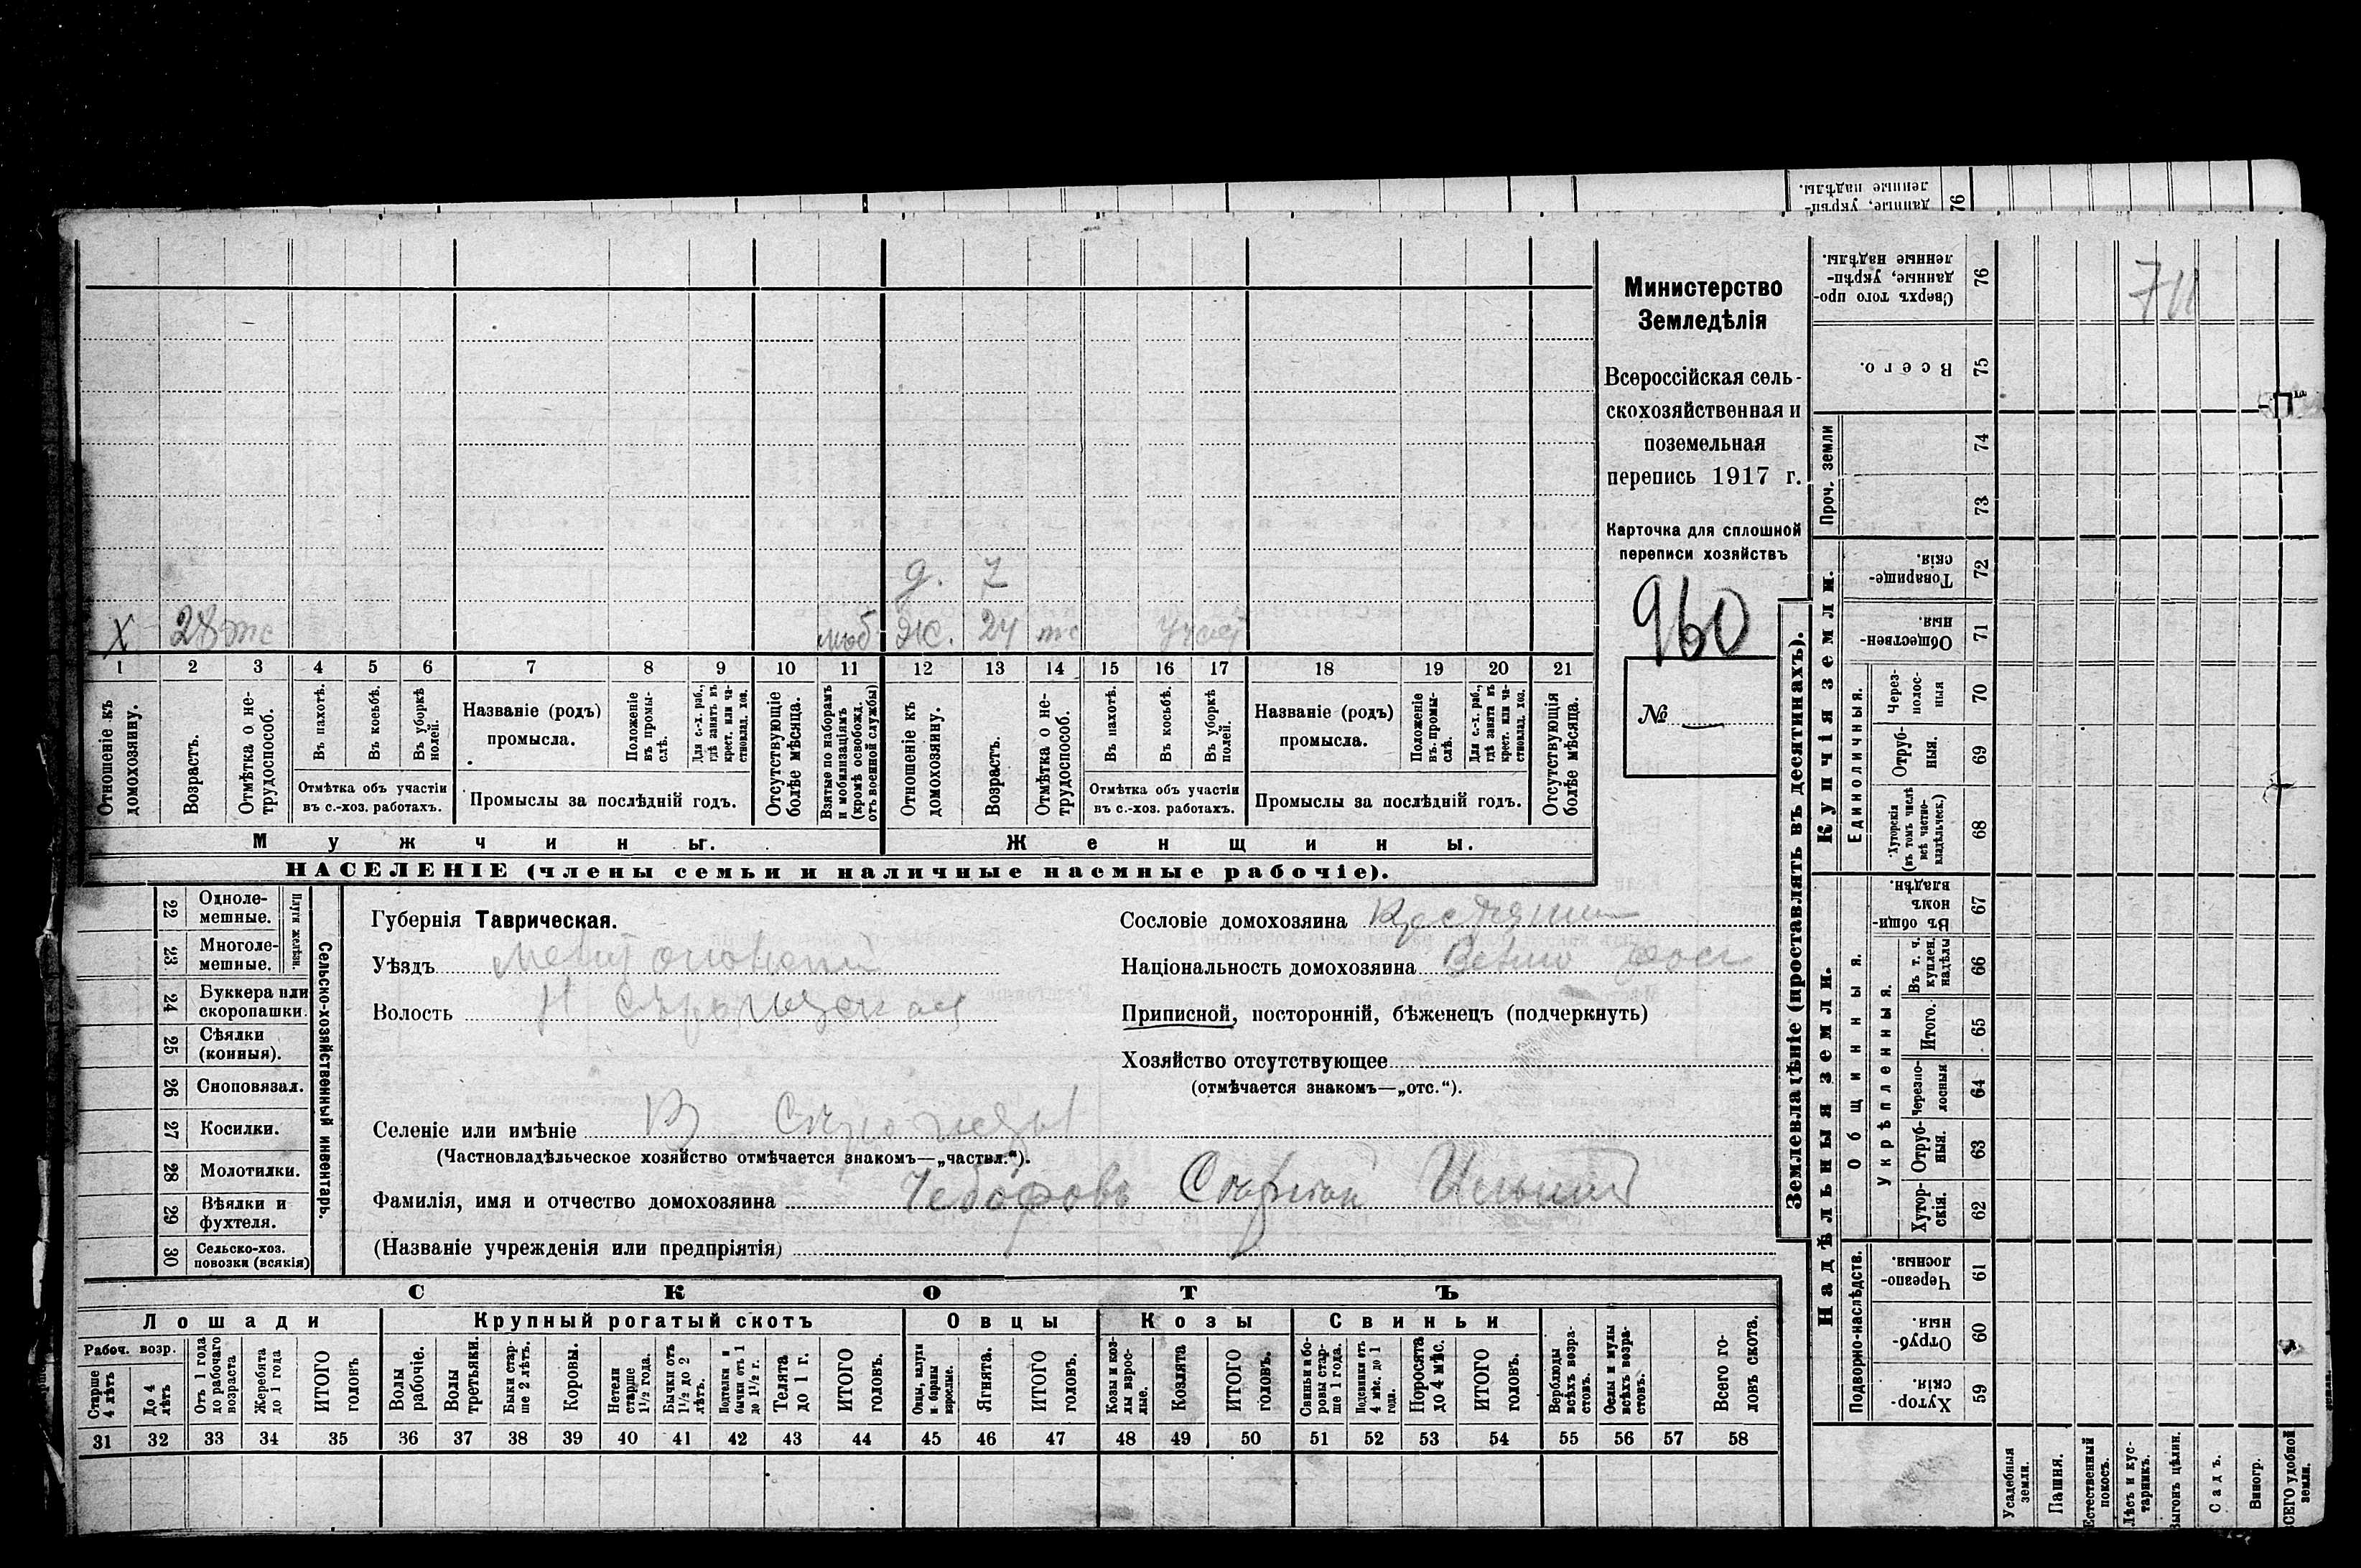 ленные надѣлы.
данные, укрѣп-
76
Министерство
Земледѣлія
Всероссійская сель-
скохозяйственная и
поземельная
перепись 1917 г.
Карточка для сплошной
переписи хозяйствъ
960
№ —
д. 7
х 28 моб Ж. 24
1 2 3 4 5 6 7 8 9 10 11 12 13 14 15 16 17 18 19 20 21
Отношеніе къ домохозяину.
Возрастъ.
Отмѣтка о не-трудоспособ.
Въ пахотѣ.
Въ косьбѣ.
Въ уборкѣ полей.
Отмѣтка объ участіи
въ с.-хоз. работахъ.
Названіе (родъ)
промысла.
Положеніе въ промы-слѣ.
Для с.-х. раб., гдѣ занятъ въ крест. или ча-стновлад. хоз.
Промыслы за послѣдній годъ.
Отсутствующіе болѣе мѣсяца.
Взятые по наборамъ и мобилизаціямъ (кромѣ освобожд. отъ военной службы)
Отношеніе къ домохозяину.
Возрастъ.
Отмѣтка о не-трудоспособ.
Въ пахотѣ.
Въ косьбѣ.
Въ уборкѣ полей.
Отмѣтка объ участіи
въ с.-хоз. работахъ.
Названіе (родъ)
промысла.
Положеніе въ промы-слѣ.
Для с.-х. раб., гдѣ занята въ крест. или ча-стновлад. хоз.
Промыслы за послѣдній годъ.
Отсутствующія болѣе мѣсяца.
Мужчины.
Женщины.
НАСЕЛЕНІЕ (члены семьи и наличные наемные рабочіе).
22 Одноле-мешные.
23 Многоле-мешные.
Плуги желѣзн.
24 Буккера или скоропашки.
25 Сѣялки (конныя).
26 Сноповязал.
27 Косилки.
28 Молотилки.
29 Вѣялки и фухтеля.
30 Сельско-хоз. повозки (всякія)
Сельско-хозяйственный инвентарь.
Губернія Таврическая.
Уѣздъ
Волость
Селеніе или имѣніе
(Частновладѣльческое хозяйство отмѣчается знакомъ—„частвл.“).
Фамилія, имя и отчество домохозяина
(Названіе учрежденія или предпріятія)
Сословіе домохозяина
Національность домохозяина
Приписной, посторонній, бѣженецъ (подчеркнуть)
Хозяйство отсутствующее
(отмѣчается знакомъ—„отс.“).
СКОТЪ
Лошади
Крупный рогатый скотъ
Овцы
Козы
Свиньи
Рабоч. возр.
Старше 4 лѣтъ
До 4 лѣтъ
Отъ 1 года до рабочаго возраста
Жеребята до 1 года
ИТОГО головъ
Волы рабочіе.
Волы третьяки.
Быки стар-ше 2 лѣтъ.
Коровы.
Нетели старше 1½ года.
Бычки отъ 1½ до 2 лѣтъ.
Подтелки и бычки отъ 1 до 1½ г.
Телята до 1 г.
ИТОГО головъ.
Овцы, валухи и бараны взрослые.
Ягнята.
ИТОГО головъ.
Козы и коз-лы взрос-лые.
Козлята
ИТОГО головъ.
Свиньи и бо-ровы стар-ше 1 года.
Подсвинки отъ 4 мѣс. до 1 года.
Поросята до 4 мѣс.
ИТОГО головъ.
Верблюды всѣхъ возра-стовъ.
Ослы и мулы всѣхъ возра-стовъ.
Всего го-ловъ скота.
31 32 33 34 35 36 37 38 39 40 41 42 43 44 45 46 47 48 49 50 51 52 53 54 55 56 57 58
Землевладѣніе (проставлять въ десятинахъ).
Сверхъ того про-данные, укрѣп-ленные надѣлы. 76
Всего. 75
Проч. земли
74
73
Купчія земли.
Товарище-скія. 72
Обществен-ныя. 71
Единоличныя.
Через-полос-ныя 70
Отруб-ныя. 69
Хуторскія (въ томъ числѣ всѣ частно-владѣльческ.) 68
Надѣльныя земли.
Общинныя.
Въ общин-номъ владѣн. 67
Укрѣпленныя.
Въ т. ч. куплен. надѣлы 66
Итого. 65
Черезпо-лосныя 64
Отруб-ныя. 63
Хутор-скія. 62
Подворно-наслѣдств.
Черезпо-лосныя 61
Отруб-ныя 60
Хутор-скія. 59
Усадебныя земли.
Пашня.
Естественный покосъ.
Лѣсъ и кус-тарникъ.
Выгонъ цѣлин.
Садъ.
Виногр.
ВСЕГО удобной земли.